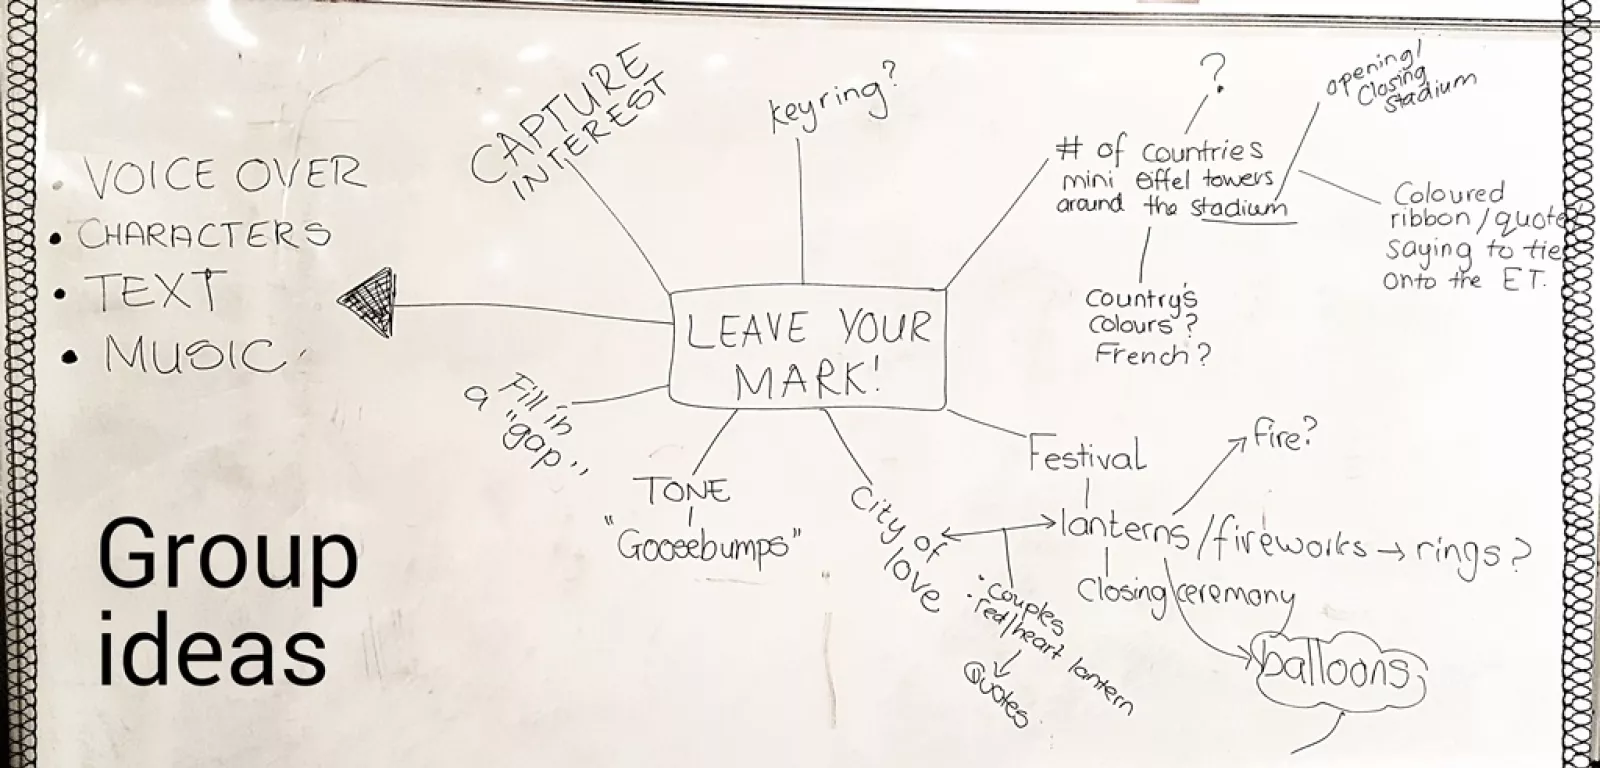 CAPTURE
INTEREST
keyring?
?
opening/
closing
stadium
# of countries
mini eiffel towers
around the stadium
Coloured
ribbon/quote/
saying to tie
onto the ET.
Country's
colours?
French?
• VOICE OVER
• CHARACTERS
• TEXT
• MUSIC
LEAVE YOUR
MARK!
Fill in
a "gap"
TONE
"Goosebumps"
City of
love
• couples
• red/heart lantern
Quotes
Festival
fire?
lanterns/fireworks → rings?
Closing ceremony
balloons
Group
ideas